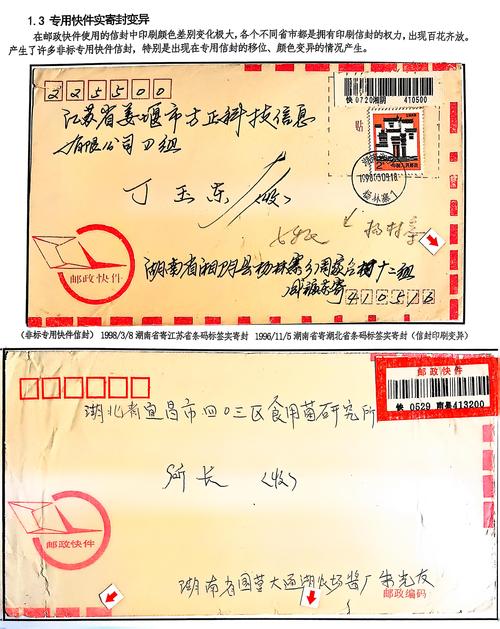 1.3 专用快件实寄封变异
在邮政快件使用的信封中印刷颜色差别变化极大,各个不同省市都是拥有印刷信封的权力,出现百花齐放。
产生了许多非标专用快件信封,特别是出现在专用信封的移位、颜色变异的情况产生。
225500
江苏省姜堰市方正科技信息
有限公司刀组
丁玉东(收)
快 0720湘阴 410500
贴
中国人民邮政
1998.03.09.18
杨林寨
邮政快件
湖南省湘阴县杨林寨乡周家台村十二组
410516
(非标专用快件信封) 1998/3/8 湖南省寄江苏省条码标签实寄封 1996/11/5 湖南省寄湖北省条码标签实寄封(信封印刷变异)
邮政快件
快 0529 南县413200
湖北省宜昌市四0三区食用菌研究所
所长 (收)
邮政快件
湖南省国营大通湖农场酱厂朱先友
邮政编码